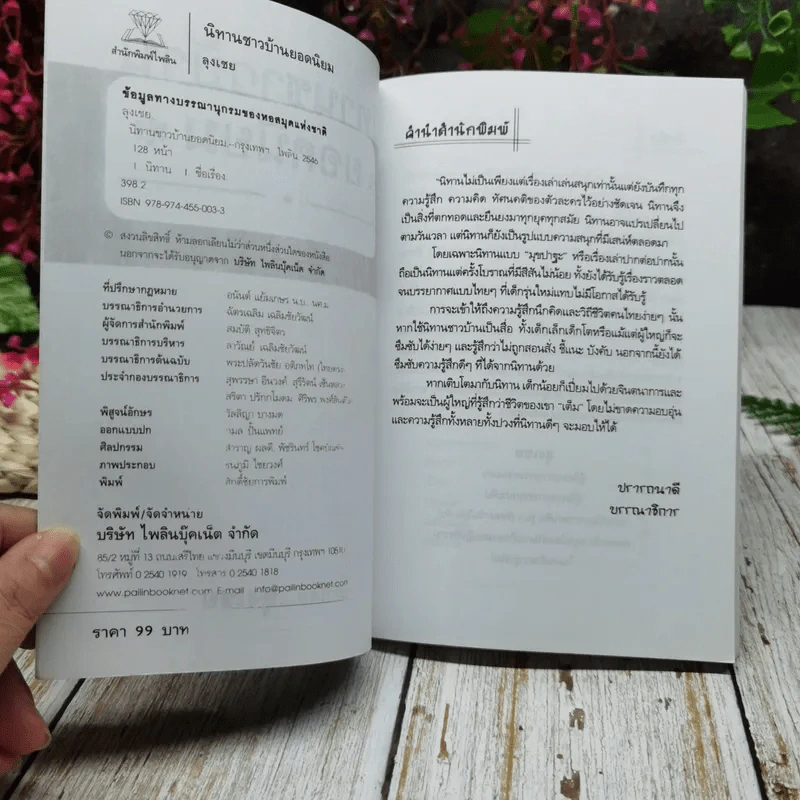 สำนักพิมพ์ไพลิน
นิทานชาวบ้านยอดนิยม
ลุงเชย
ข้อมูลทางบรรณานุกรมของหอสมุดแห่งชาติ
ลุงเชย.
นิทานชาวบ้านยอดนิยม.--กรุงเทพฯ ไพลิน 2546
128 หน้า
1 นิทาน I ชื่อเรื่อง
398.2
ISBN 978-974-455-003-3
© สงวนลิขสิทธิ์ ห้ามลอกเลียนไม่ว่าส่วนหนึ่งส่วนใดของหนังสือ
นอกจากจะได้รับอนุญาตจาก บริษัท ไพลินบุ๊คเน็ต จำกัด
ที่ปรึกษากฎหมาย อนันต์ แย้มเกษร น.บ. นศ.ม.
บรรณาธิการอำนวยการ ฉัตรเฉลิม เฉลิมชัยวัฒน์
ผู้จัดการสำนักพิมพ์ สมบัติ สุทธิจิตร
บรรณาธิการบริหาร ลาวัณย์ เฉลิมชัยวัฒน์
บรรณาธิการต้นฉบับ พระปลัดวันชัย อติภทฺโท
ประจำกองบรรณาธิการ สุพรรษา อินวงศ์ สุรีรัตน์
สริตา ปริกกโมดม ศิริพร
พิสูจน์อักษร วัลลิญา บางมด
ออกแบบปก ปั้นแพทย์
ศิลปกรรม สำราญ ผลดี, พัชรินทร์
ภาพประกอบ ธนภูมิ ไชยวงศ์
พิมพ์ ศักดิ์ชัยการพิมพ์
จัดพิมพ์/จัดจำหน่าย
บริษัท ไพลินบุ๊คเน็ต จำกัด
85/2 หมู่ที่ 13 ถนนเสรีไทย แขวงมีนบุรี เขตมีนบุรี กรุงเทพฯ 10510
โทรศัพท์ 0 2540 1919 โทรสาร 0 2540 1818
www.pailinbooknet.com E-mail info@pailinbooknet.com
ราคา 99 บาท
คำนำสำนักพิมพ์
"นิทานไม่เป็นเพียงแต่เรื่องเล่าเล่นสนุกเท่านั้นแต่ยังบันทึกทุก
ความรู้สึก ความคิด ทัศนคติของตัวละครไว้อย่างชัดเจน นิทานจึง
เป็นสิ่งที่ตกทอดและยืนยงมาทุกยุคทุกสมัย นิทานอาจแปรเปลี่ยนไป
ตามวันเวลา แต่นิทานก็ยังเป็นรูปแบบความสนุกที่มีเสน่ห์ตลอดมา
โดยเฉพาะนิทานแบบ "มุขปาฐะ" หรือเรื่องเล่าปากต่อปากนั้น
ถือเป็นนิทานแต่ครั้งโบราณที่มีสีสันไม่น้อย ทั้งยังได้รับรู้เรื่องราวตลอด
จนบรรยากาศแบบไทยๆ ที่เด็กรุ่นใหม่แทบไม่มีโอกาสได้รับรู้
การจะเข้าให้ถึงความรู้สึกนึกคิดและวิถีชีวิตคนไทยง่ายๆ นั้น
หากใช้นิทานชาวบ้านเป็นสื่อ ทั้งเด็กเล็กเด็กโตหรือแม้แต่ผู้ใหญ่ก็จะ
ซึมซับได้ง่ายๆ และรู้สึกว่าไม่ถูกสอนสั่ง ชี้แนะ บังคับ นอกจากนี้ยังได้
ซึมซับความรู้สึกดีๆ ที่ได้จากนิทานด้วย
หากเติบโตมากับนิทาน เด็กน้อยก็เปี่ยมไปด้วยจินตนาการและ
พร้อมจะเป็นผู้ใหญ่ที่รู้สึกว่าชีวิตของเขา "เต็ม" โดยไม่ขาดความอบอุ่น
และความรู้สึกทั้งหลายทั้งปวงที่นิทานดีๆ จะมอบให้ได้
ปรารถนาดี
บรรณาธิการ